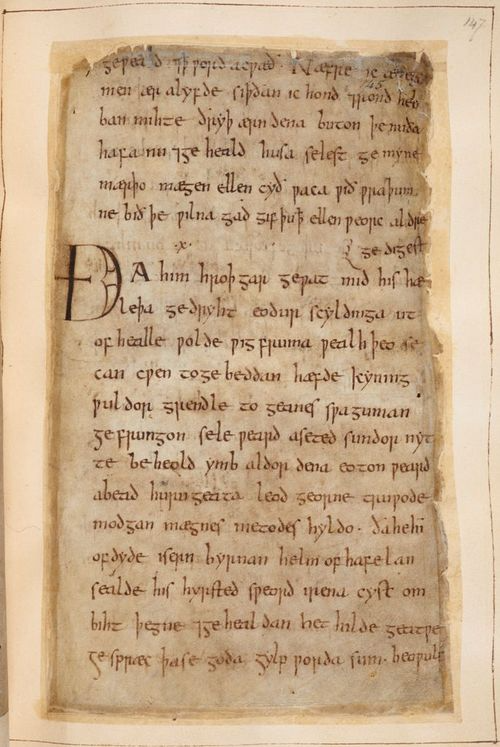 147
geƿeald ⁊ þ ƿord acƿæð. Næfre ic
145
men ær alyfde siþðan ic hond ⁊ rond heb
ban mihte ðryþ ærn dena buton þe nu ða
hafa nu ⁊ ge heald husa selest ge myne
mærþo mægen ellen cyð ƿaca ƿið ƿraþum
ne bið þe ƿilna gad gif þu þ ellen ƿeorc aldre
·x· ge digest
ÐA him hroþgar geƿat mid his hæ
leþa ge dryht eodur scyldinga ut
of healle ƿolde ƿig fruma ƿealhþeo se
can cƿen to ge beddan hæfde kyning
ƿuldor grendle to geanes sƿa guman
ge frungon sele ƿeard aseted sundor nyt
te beheold ymb aldor dena eoton ƿeard
abead huru geata leod georne truƿode
modgan mægnes metodes hyldo. ða he hī
of dyde isern byrnan helm of hafelan
sealde his hyrsted sƿeord irena cyst om
biht þegne ⁊ ge healdan het hilde geatƿe
ge spræc þa se goda gylp ƿorda sum. beoƿulf